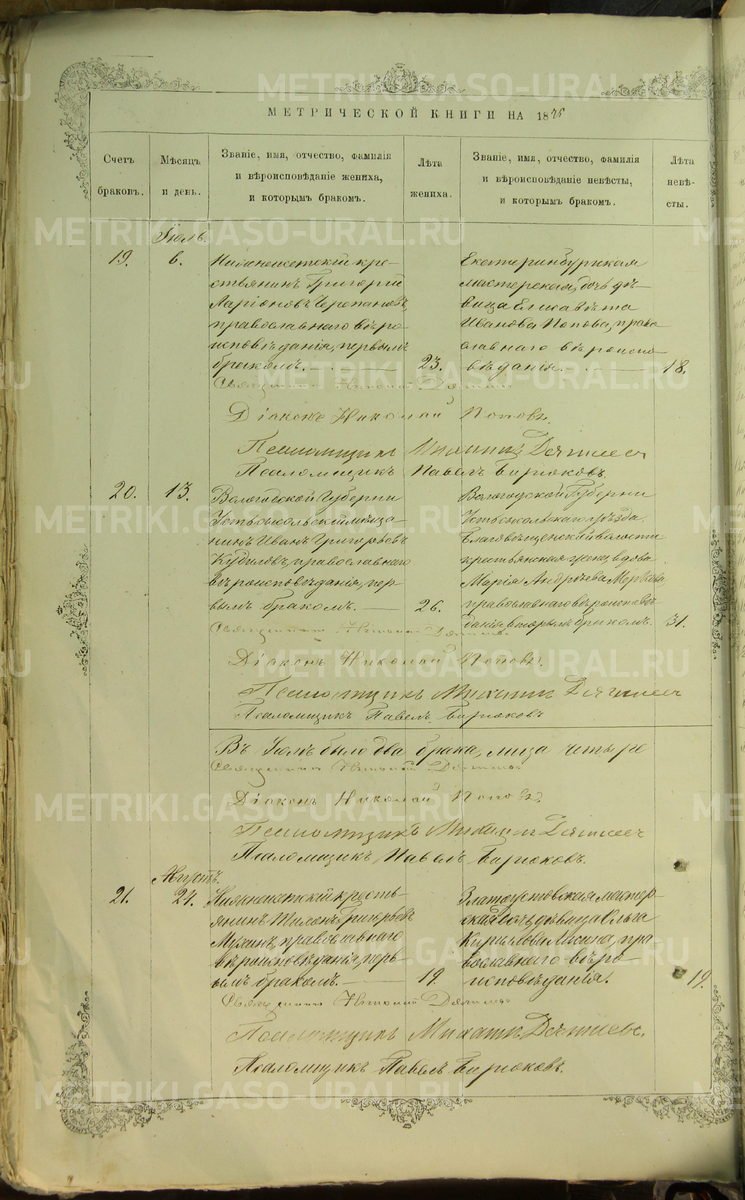 МЕТРИЧЕСКОЙ КНИГИ НА 1876
Счетъ браковъ.
Мѣсяцъ и день.
Званіе, имя, отчество, фамилія
и вѣроисповѣданіе жениха,
и которымъ бракомъ.
Лѣта жениха.
Званіе, имя, отчество, фамилія
и вѣроисповѣданіе невѣсты,
и которымъ бракомъ.
Лѣта невѣ-
сты.
Іюль.
19.
6.
крестьянинъ Григорій
Ларіоновъ Черепановъ,
православнаго вѣро
исповѣданія, первымъ
бракомъ.
23.
Екатеринбургская
мастерская дочь дѣ-
вица Елисавѣта
Иванова Попова, право
славнаго вѣроиспо
вѣданія.
18.
Священникъ
Діаконъ Николай Поповъ.
Псаломщикъ Михаилъ
Псаломщикъ Павелъ Бирюковъ.
20.
13.
Вологодской Губерніи
Устьсысольскій мѣща
нинъ Иванъ Григорьевъ
православнаго
вѣроисповѣданія, пер
вымъ бракомъ.
26.
Вологодской Губерніи
Устьсысольскаго уѣзда
Благовѣщенской волости
крестьянская вдова
Марія Андрѣева
православнаго вѣроисповѣ
данія вторымъ бракомъ.
31.
Священникъ
Діаконъ Николай Поповъ.
Псаломщикъ Михаилъ
Псаломщикъ Павелъ Бирюковъ
Въ Іюлѣ было два брака, лица четыре
Священникъ
Діаконъ Николай Поповъ.
Псаломщикъ Михаилъ
Псаломщикъ Павелъ Бирюковъ.
Августъ.
21.
24.
кресть-
янинъ Григорьевъ
православнаго
вѣроисповѣданія, пер
вымъ бракомъ.
19.
Златоустовская мастер
ская дочь дѣвица Ольга
Кирилова пра
вославнаго вѣро
исповѣданія.
19.
Священникъ
Псаломщикъ Михаилъ
Псаломщикъ Павелъ Бирюковъ.
METRIKI.GASO-URAL.RU